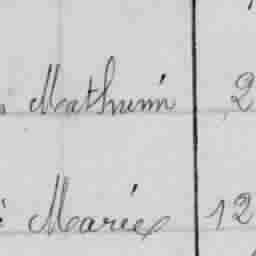 Mathurin 2
Marie 12